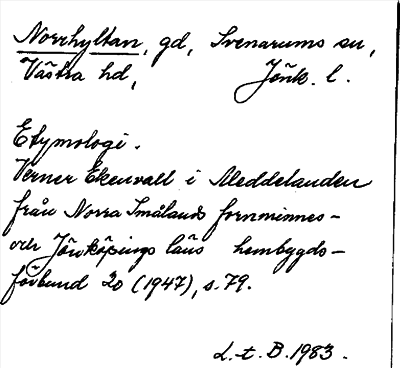 Norrhyltan, gd, Svenarums sn,
Västra hd, Jönk. l.
Etymologi.
Verner Ekenvall i Meddelanden
från Norra Smålands fornminnes-
och Jönköpings läns hembygds-
förbund 20 (1947), s. 79.
L. t. B. 1983.